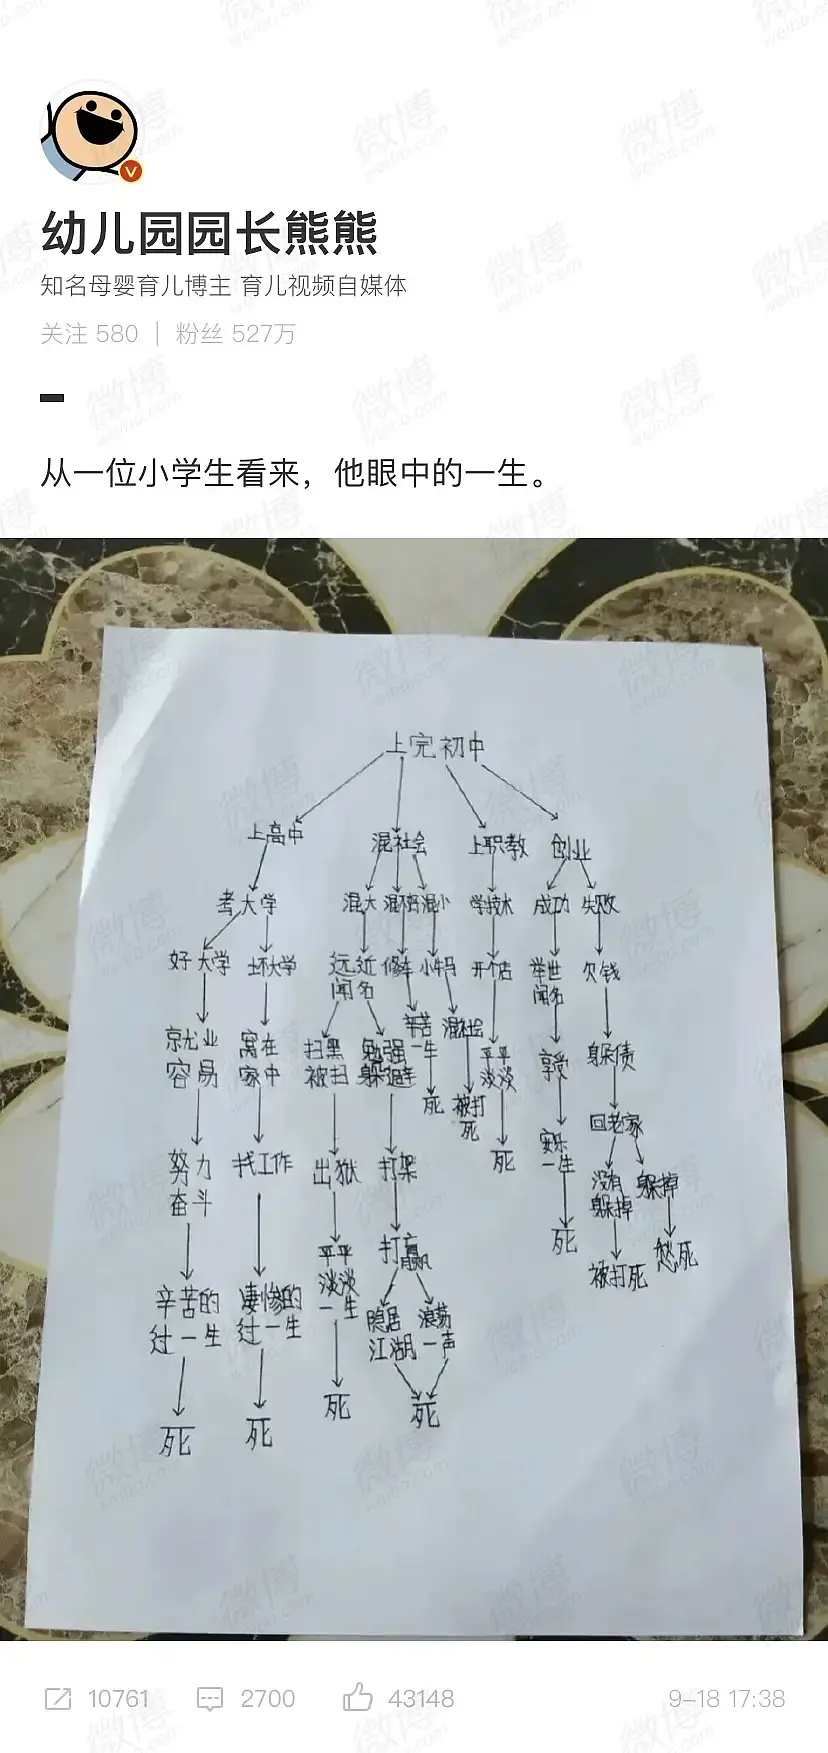 幼儿园园长熊熊
知名母婴育儿博主 育儿视频自媒体
关注 580 | 粉丝 527万
从一位小学生看来，他眼中的一生。
上完初中
上高中 混社会 上职教 创业
考大学 混大 混不好 混小 学技术 成功 失败
好大学 坏大学 远近 修车 小牛马 开个店 举世 欠钱
闻名 闻名
就业 窝在 扫黑 勉强 辛苦 混社会 平平 享受 躲债
容易 家中 被扫 躲避 一生 淡淡
死 被打 回老家
死
努力 找工作 出狱 打架 死 安乐 没有 躲掉
奋斗 一生 躲掉
平平 打赢 死 被打死 愁死
淡淡
一生
辛苦的 凄惨的 隐居 浪荡
过一生 过一生 江湖 一声
死 死 死 死
10761 2700 43148 9-18 17:38
微博
weibo.com